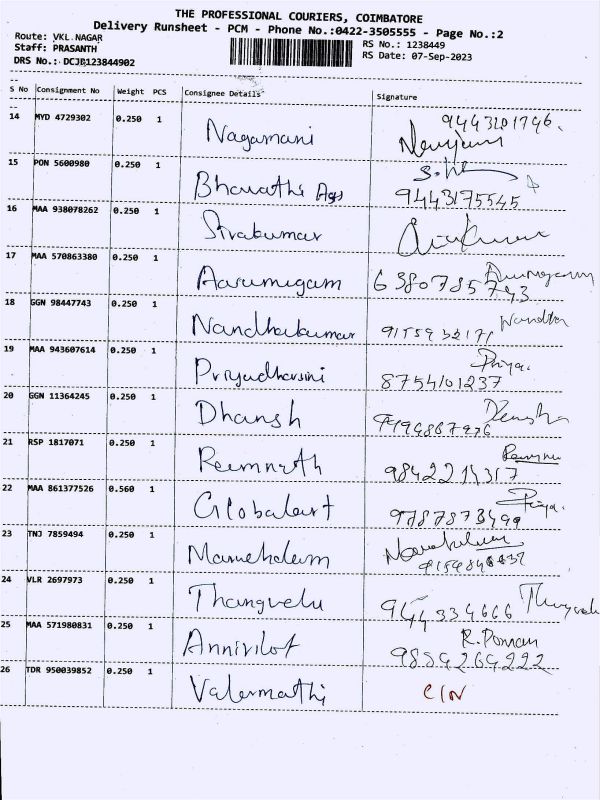 THE PROFESSIONAL COURIERS, COIMBATORE
Delivery Runsheet - PCM - Phone No.:0422-3505555 - Page No.:2
Route: VKL NAGAR
RS No.: 1238449
Staff: PRASANTH
RS Date: 07-Sep-2023
DRS No.: DCJB123844902
S No Consignment No Weight PCS Consignee Details Signature
14 MYD 4729302 0.250 1 Nagamani 9443201746.
15 PON 5600980 0.250 1 Bharathi Ags 9443175545
16 MAA 938078262 0.250 1 Sivakumar
17 MAA 570863380 0.250 1 Aarumugam 6380785743
18 GGN 98447743 0.250 1 Nandhakumar
19 MAA 943607614 0.250 1 Priyadharsini Priya.
8754101237
20 GGN 11364245 0.250 1 Dhansh
21 RSP 1817071 0.250 1 Raemnath 9842214317
22 MAA 861377526 0.560 1 Globalart Priya.
9787873499
23 TNJ 7859494 0.250 1
24 VLR 2697973 0.250 1 Thangvelu 944334666
25 MAA 571980831 0.250 1 Annivilot
9884264222
26 TDR 950039852 0.250 1 Valarmathi